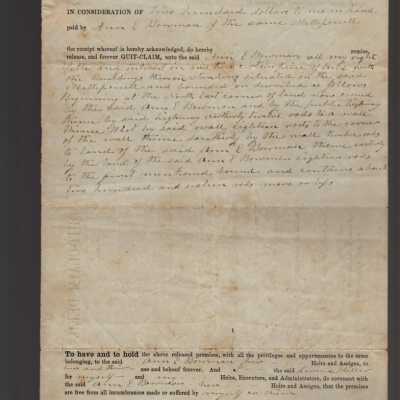 IN CONSIDERATION OF Two hundred dollars to me in hand
paid by Ann E Bowman of the same Mattapoisett
the receipt whereof is hereby acknowledged, do hereby remise,
release, and forever QUIT-CLAIM, unto the said Ann E Bowman all my right
title and interest in and to a certain of land with
the buildings thereon standing situated in the said
Mattapoisett and bounded as follows
Beginning at the East corner of land now owned
by the said Ann E Bowman and by the public highway
thence by said highway westerly twelve rods to a wall
thence West by said wall eighteen rods to the corner
of the wall thence by the wall twelve rods
to land of the said Ann E Bowman thence
by the land of the said Ann E Bowman eighteen rods
to the first mentioned bound and contains about
Two hundred and sixteen rods more or less
To have and to hold the above released premises, with all the privileges and appurtenances to the same
belonging, to the said Ann E Bowman her Heirs and Assigns, to
use and behoof forever. And the said
for myself and my Heirs, Executors, and Administrators, do covenant with
the said Ann E Bowman her Heirs and Assigns, that the premises
are free from all incumbrances made or suffered by myself